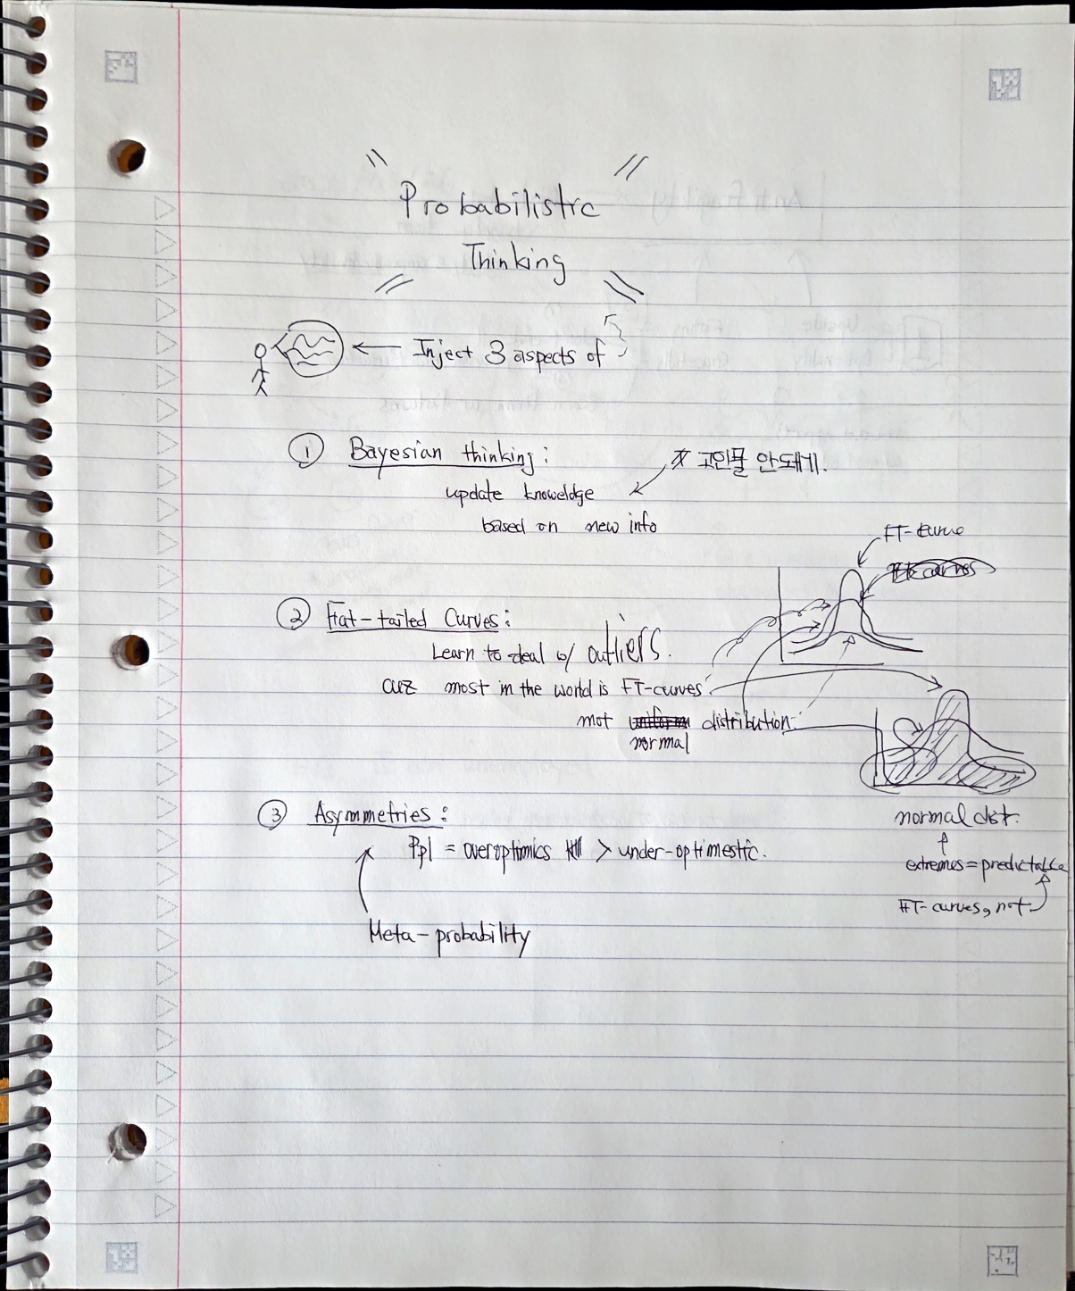 Probabilistic
Thinking
Inject 3 aspects of
① Bayesian thinking:
고인물 안돼게.
update knoweldge
based on new info
FT-curve
② Fat-tailed Curves:
Learn to deal w/ outliers.
cuz most in the world is FT-curves
not distribution
normal
③ Asymmetries:
Ppl = overoptimics > under-optimestic.
Meta-probability
normal dist.
extremes = predictable
FT-curves, not